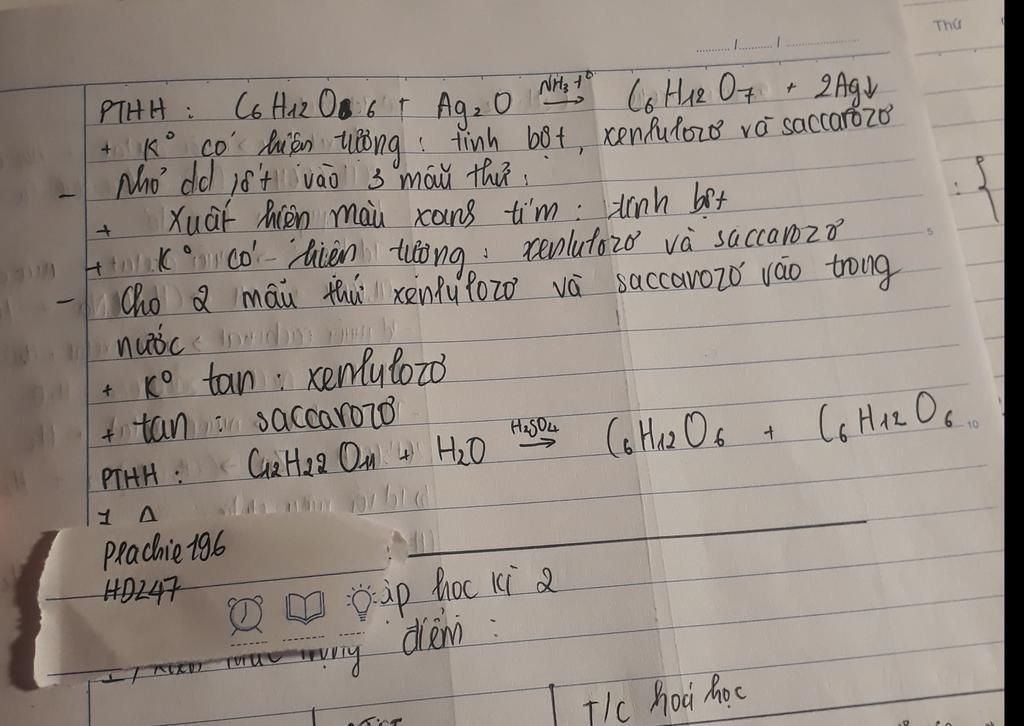 Thứ
PTHH : C6H12O6 + Ag2O NH3 t° → C6H12O7 + 2Ag↓
+ K° có hiện tường : tinh bột, xenlulozơ và saccarozơ
- Nhỏ dd iốt vào 3 mẫu thử :
+ Xuất hiện màu xanh tím : tinh bột
+ K° có hiện tường : xenlulozơ và saccarozơ
- Cho 2 mẫu thử xenlulozơ và saccarozơ vào trong
nước
+ K° tan : xenlulozơ
+ tan : saccarozơ
PTHH : C12H22O11 + H2O H2SO4 → C6H12O6 + C6H12O6
5
10
Prachie196
HD247
ập học kì 2
trọng điểm :
T/c hoá học